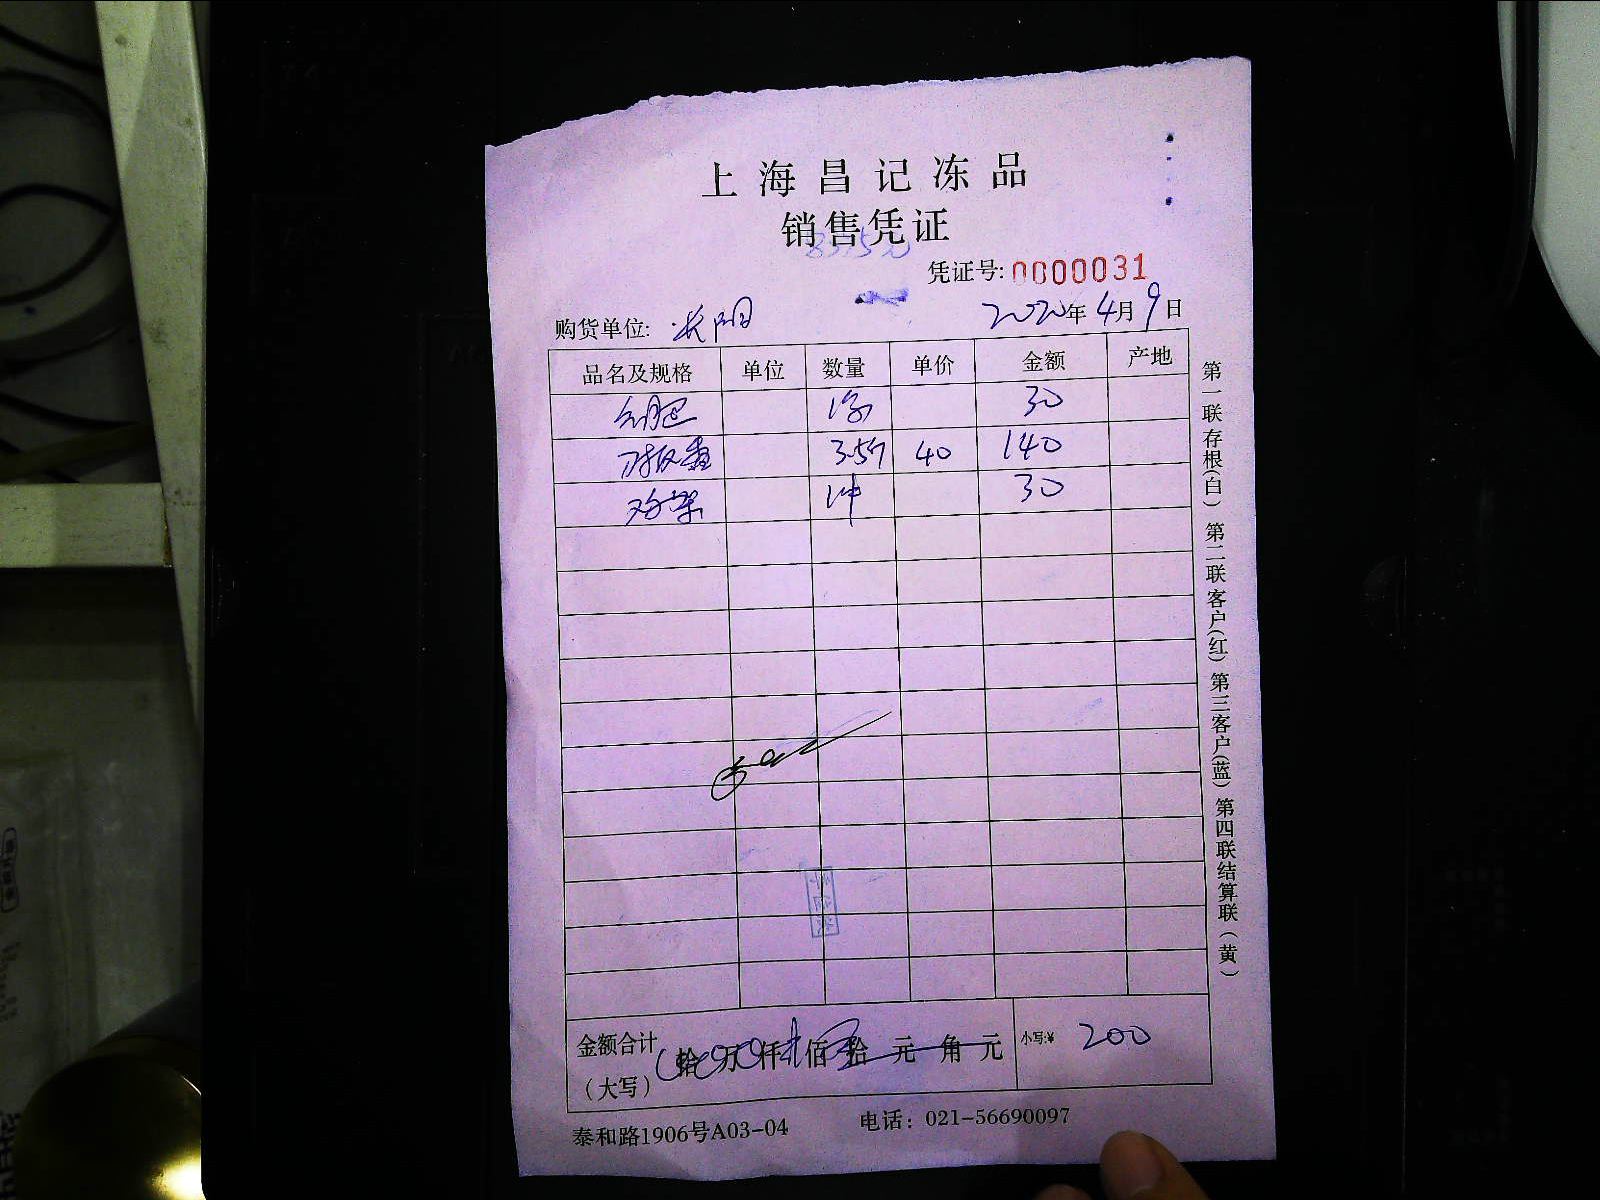 上海昌记冻品
销售凭证
凭证号:0000031
购货单位: 长阳 2020年4月9日
品名及规格 单位 数量 单价 金额 产地
30
3.5斤 40 140
鸡架 1件 30
金额合计 拾 万 仟 佰 拾 元 角 元 小写:¥ 200
(大写)
泰和路1906号A03-04 电话: 021-56690097
第一联存根(白) 第二联客户(红) 第三客户(蓝) 第四联结算联(黄)